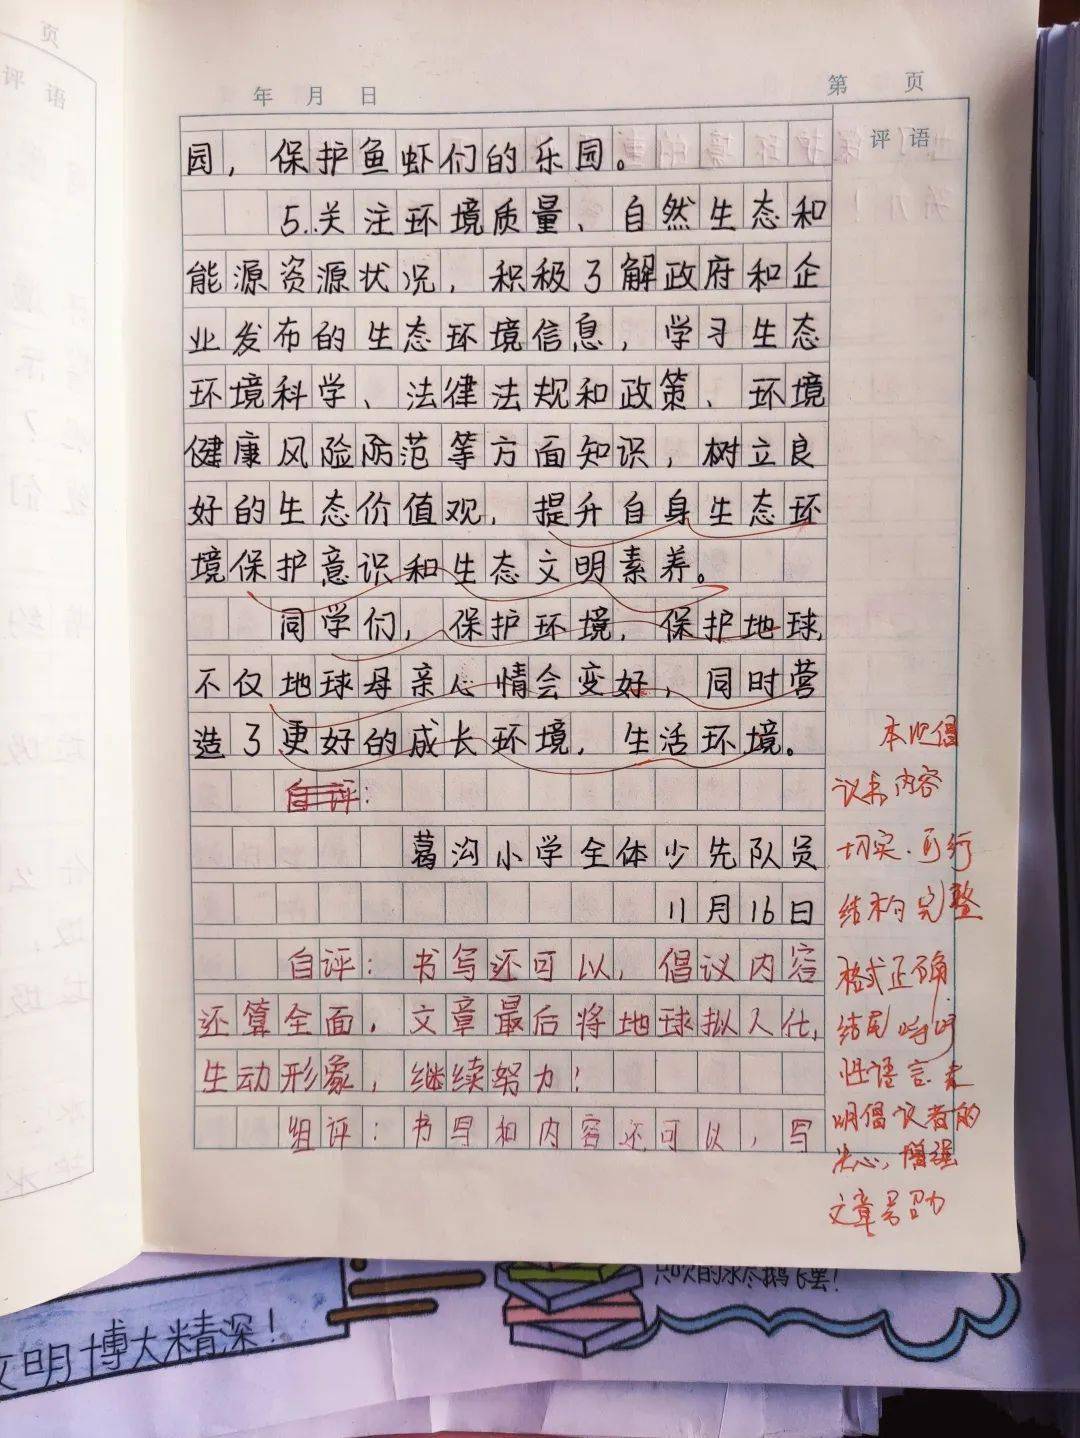 年 月 日
第 页
评语
园，保护鱼虾们的乐园。
5.关注环境质量、自然生态和
能源资源状况，积极了解政府和企
业发布的生态环境信息，学习生态
环境科学、法律法规和政策、环境
健康风险防范等方面知识，树立良
好的生态价值观，提升自身生态环
境保护意识和生态文明素养。
同学们，保护环境，保护地球，
不仅地球母亲心情会变好，同时营
造了更好的成长环境，生活环境。
自评：
葛沟小学全体少先队员
11月16日
自评：书写还可以，倡议内容
还算全面，文章最后将地球拟人化，
生动形象，继续努力！
组评：书写和内容还可以，写
本次倡
议书内容
切实.可行
结构完整
格式正确.
结尾呼吁
性语言表
明倡议者的
决心，增强
文章号召力
页
评语
文明博大精深！